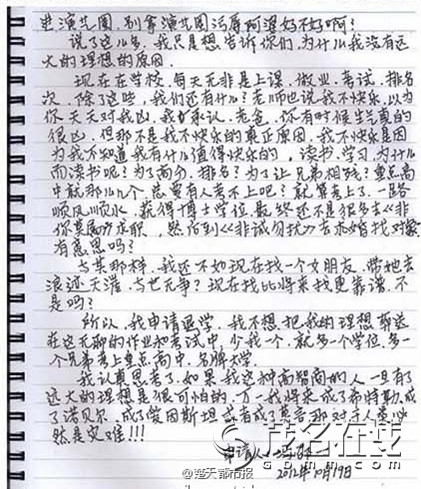 进演艺圈，别拿演艺圈污辱阿澄好不好啊？
说了这么多，我只是想告诉你们，为什么我没有远
大的理想的原因。
现在在学校，每天无非是上课、做业、考试、排名
次，除了这些，我们还有什么？老师也说我不快乐，以为
你天天对我凶，我承认，老爸，你有时候生气真的
很凶，但那不是我不快乐的真正原因，我不快乐是因
为我不知道我有什么值得快乐的，读书、学习，为什么
而读书呢？为了高分，排名？为了让兄弟相残？重点高
中就那么几个，总要有人考不上吧？就算考上了，一路
顺风顺水，获得博士学位，最终还不是很多去《非
你莫属》求职，然后到《非诚勿扰》去求婚找对象
有意思吗？
与其那样，我还不如现在找一个女朋友，带她去
浪迹天涯，与世无争？现在找比将来找更靠谱，不
是吗？
所以，我申请退学，我不想把我的理想葬送
在这无聊的作业和考试中，少我一个，就多一个学位，多一
个兄弟考上重点高中，名牌大学。
我认真思考了，如果我这种高智商的人一旦有了
远大的理想是很可怕的，万一我将来成了希特勒，成
了诺贝尔，成了爱因斯坦或者成了莫言那对于人类必
然是灾难！！！
申请人：
2012年10月19日
茂名在线
GDMM.COM
@楚天都市报